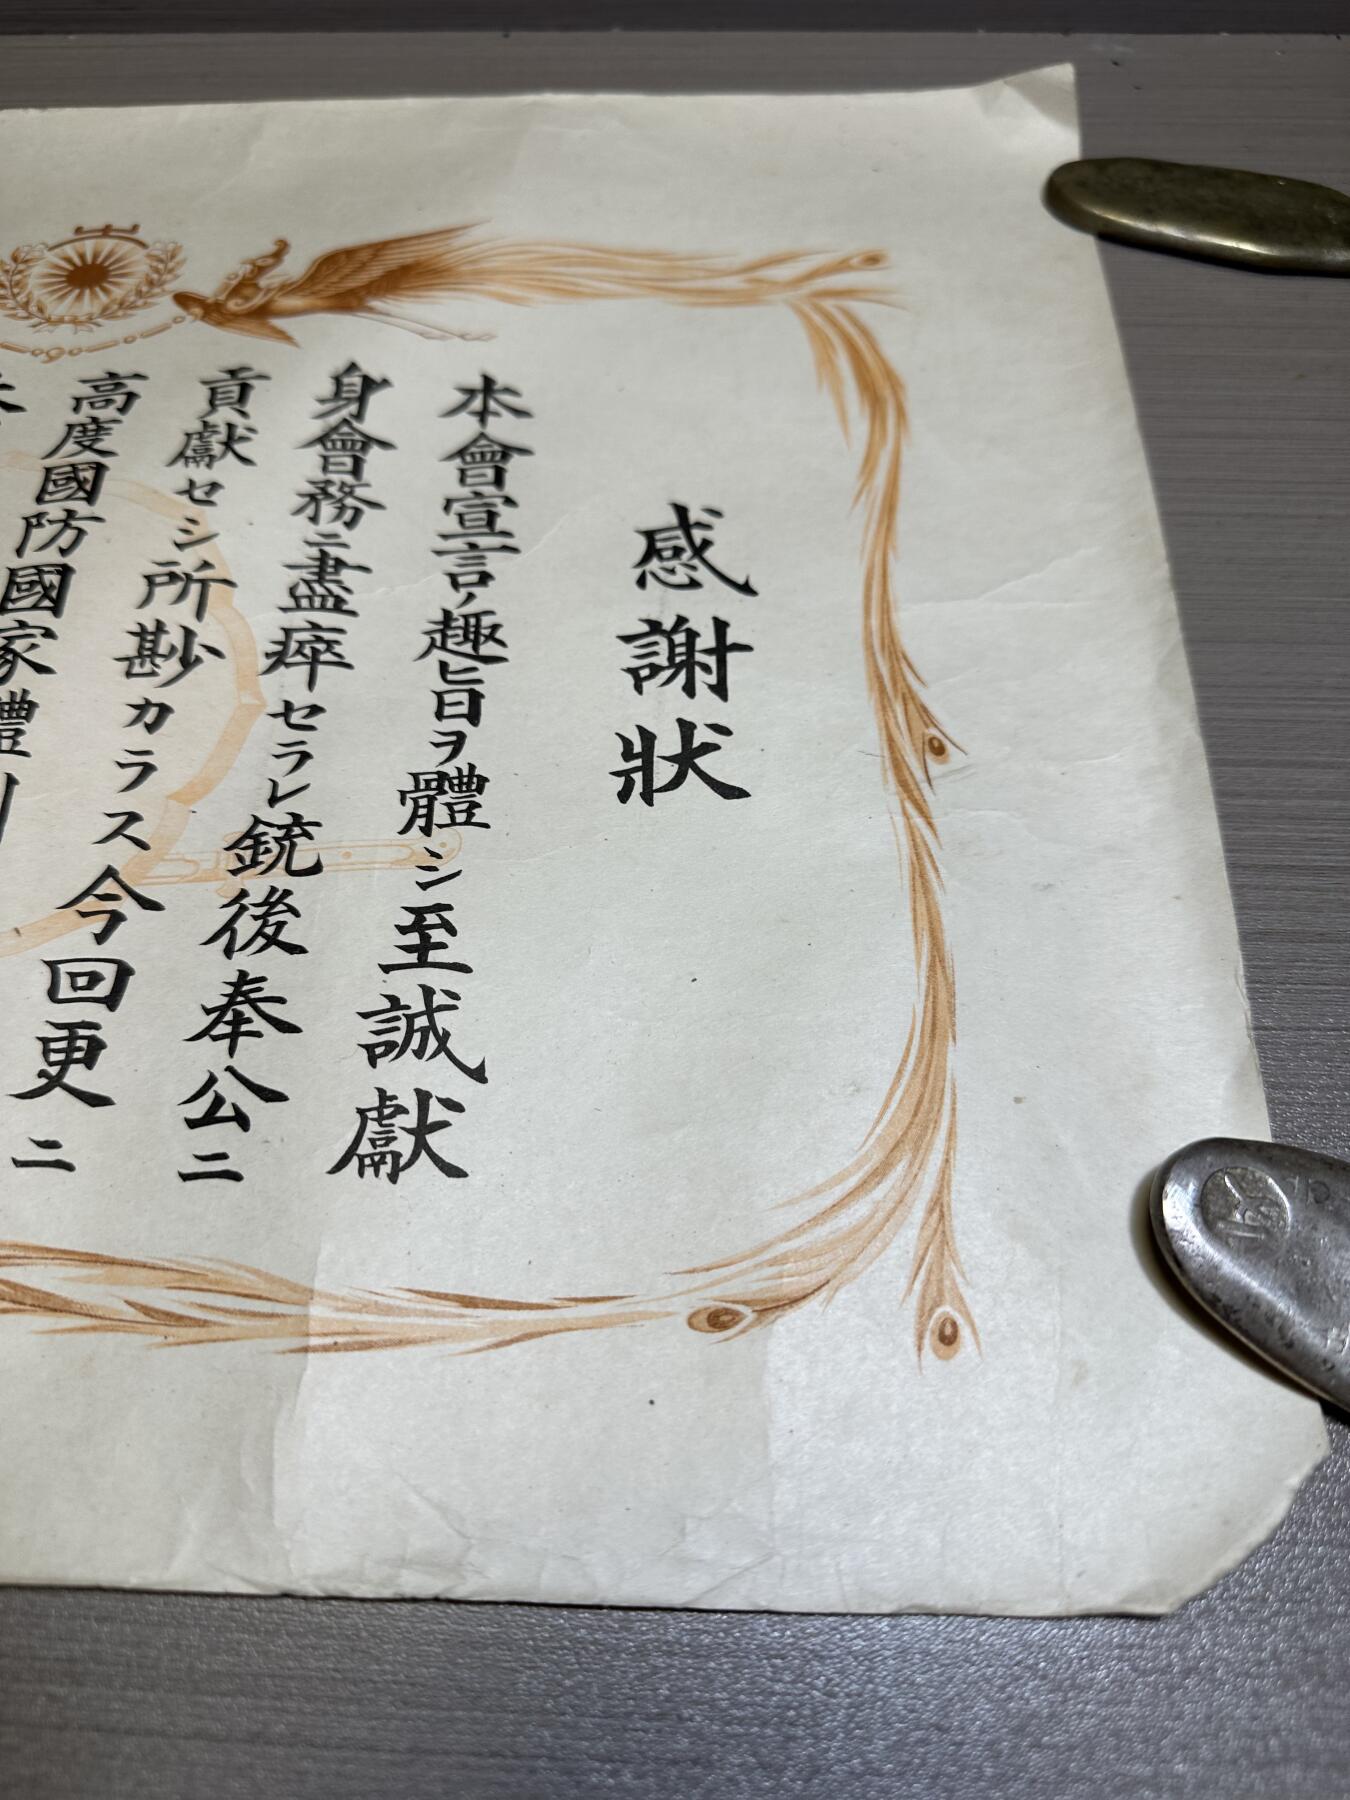 感謝狀
本會宣言ノ趣旨ヲ體シ至誠獻
身會務ニ盡瘁セラレ銃後奉公ニ
貢獻セシ所尠カラス今回更ニ
高度國防國家體制